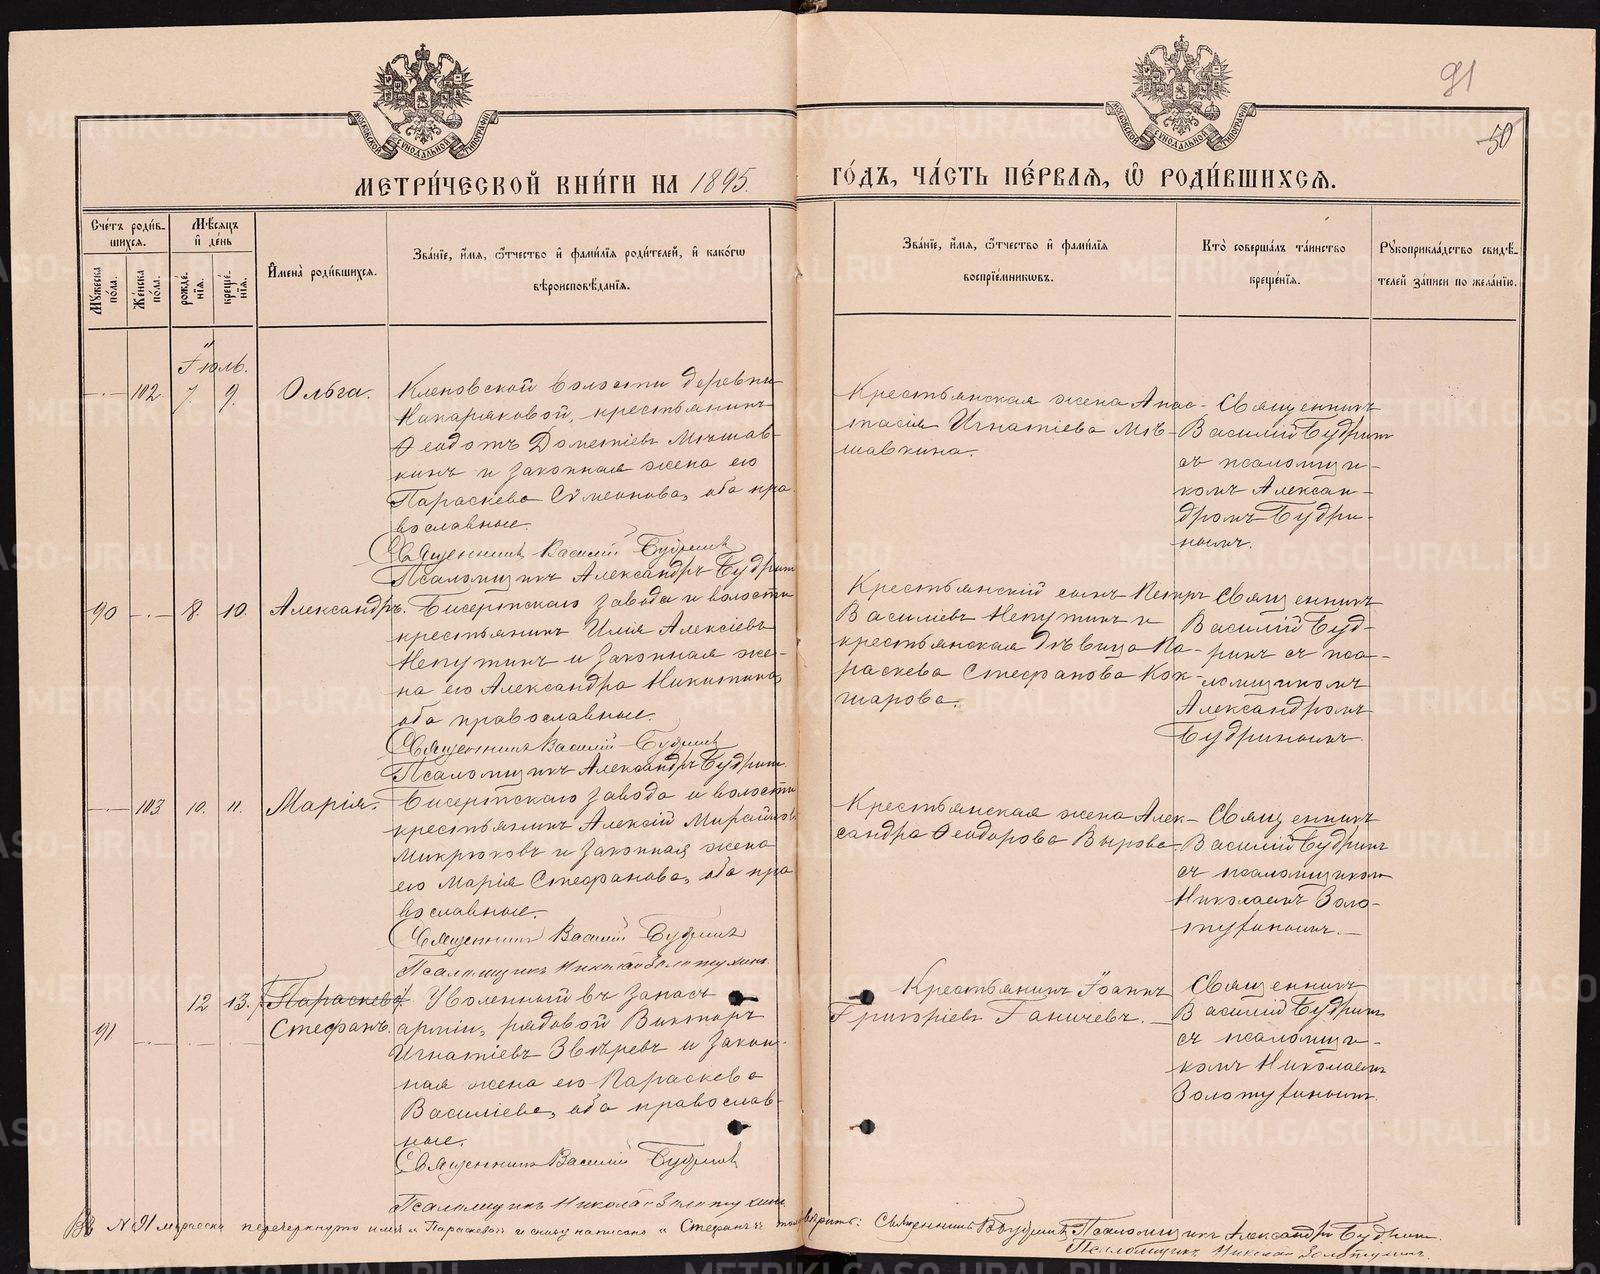 91
50
МОСКОВСКОЙ СѴНОДАЛЬНОЙ ТИПОГРАФІИ
МОСКОВСКОЙ СѴНОДАЛЬНОЙ ТИПОГРАФІИ
МЕТРИ́ЧЕСКОЙ КНИ́ГИ НА 1895.
ГО́ДЪ, ЧА́СТЬ ПЕ́РВАѦ, Ѡ РОДИ́ВШИХСѦ.
Сче́тъ роди́в-
шихся.
Мѣ́сяцъ
и҆ де́нь
Му́жеска по́ла.
Же́нска по́ла.
рожде́нїѧ.
креще́нїѧ.
И҆мена̀ роди́вшихсѧ.
Зва́нїе, и҆́мѧ, ѻ҆́тчество и҆ фамі́лїѧ роди́телей, и҆ како́гѡ
вѣроисповѣ́данїѧ.
Зва́нїе, и҆́мѧ, ѻ҆́тчество и҆ фамі́лїѧ
воспрїе́мникѡвъ.
Кто̀ соверша́лъ та́инство
креще́нїѧ.
Рꙋкоприкла́дство свидѣ́-
телей за́писи по жела́нїю.
Іюль.
-.- 102. 7. 9. Ольга.
Кленовской волости деревни
Накаряковой, крестьянинъ
Ѳеодотъ Дометіевъ Мѣшав-
кинъ и законная жена его
Параскева Сѵмеонова, оба пра
вославные.
Священникъ Василій Будринъ
Псаломщикъ Александръ Будрин
Крестьянская жена Анас-
тасія Игнатіева Мѣ-
шавкина.
Священникъ
Василій Будрин
съ псаломщи-
комъ Алексан-
дромъ Будри-
нымъ.
90 -.- 8. 10. Александръ.
Бисертскаго завода и волости
крестьянинъ Илія Алексіевъ
Непутинъ и законная же-
на его Александра Никитина,
оба православные.
Священникъ Василій Будринъ
Псаломщикъ Александръ Будрин.
Крестьянскій сынъ Петръ
Василіевъ Непутинъ и
крестьянская дѣвица Па-
раскева Стефанова Кок-
шарова.
Священникъ
Василій Буд-
ринъ съ пса-
ломщикомъ
Александромъ
Будринымъ
-.- 103. 10. 11. Марія.
Бисертскаго завода и волости
крестьянинъ Алексій
Микрюковъ и законная жена
его Марія Стефанова, оба пра
вославные.
Священникъ Василій Будринъ
Псаломщикъ Николай Золотухинъ.
Крестьянская жена Алек-
сандра Ѳеодорова Вырова.
Священникъ
Василій Будринъ
съ псаломщиком
Николаемъ Золо-
тухинымъ.
91. 12 13. Параскева
Стефанъ.
Уволенный въ запасъ
арміи, рядовой Викторъ
Игнатіевъ Звѣревъ и закон-
ная жена его Параскева
Василіева, оба православ-
ные.
Священникъ Василій Будринъ
Псаломщикъ Николай Золотухинъ
Крестьянинъ Іоаннъ
Григоріевъ Ганичевъ.
Священникъ
Василій Будринъ
съ псаломщи-
комъ Николаемъ
Золотухинымъ.
Въ № 91 мужеска перечеркнуто имя „Параскева“ и снизу написано „Стефанъ“ вѣрить: Священникъ В Будринъ Псаломщикъ Александръ Будрин.
Псаломщикъ Николай Золотухинъ.
METRIKI.GASO-URAL.RU